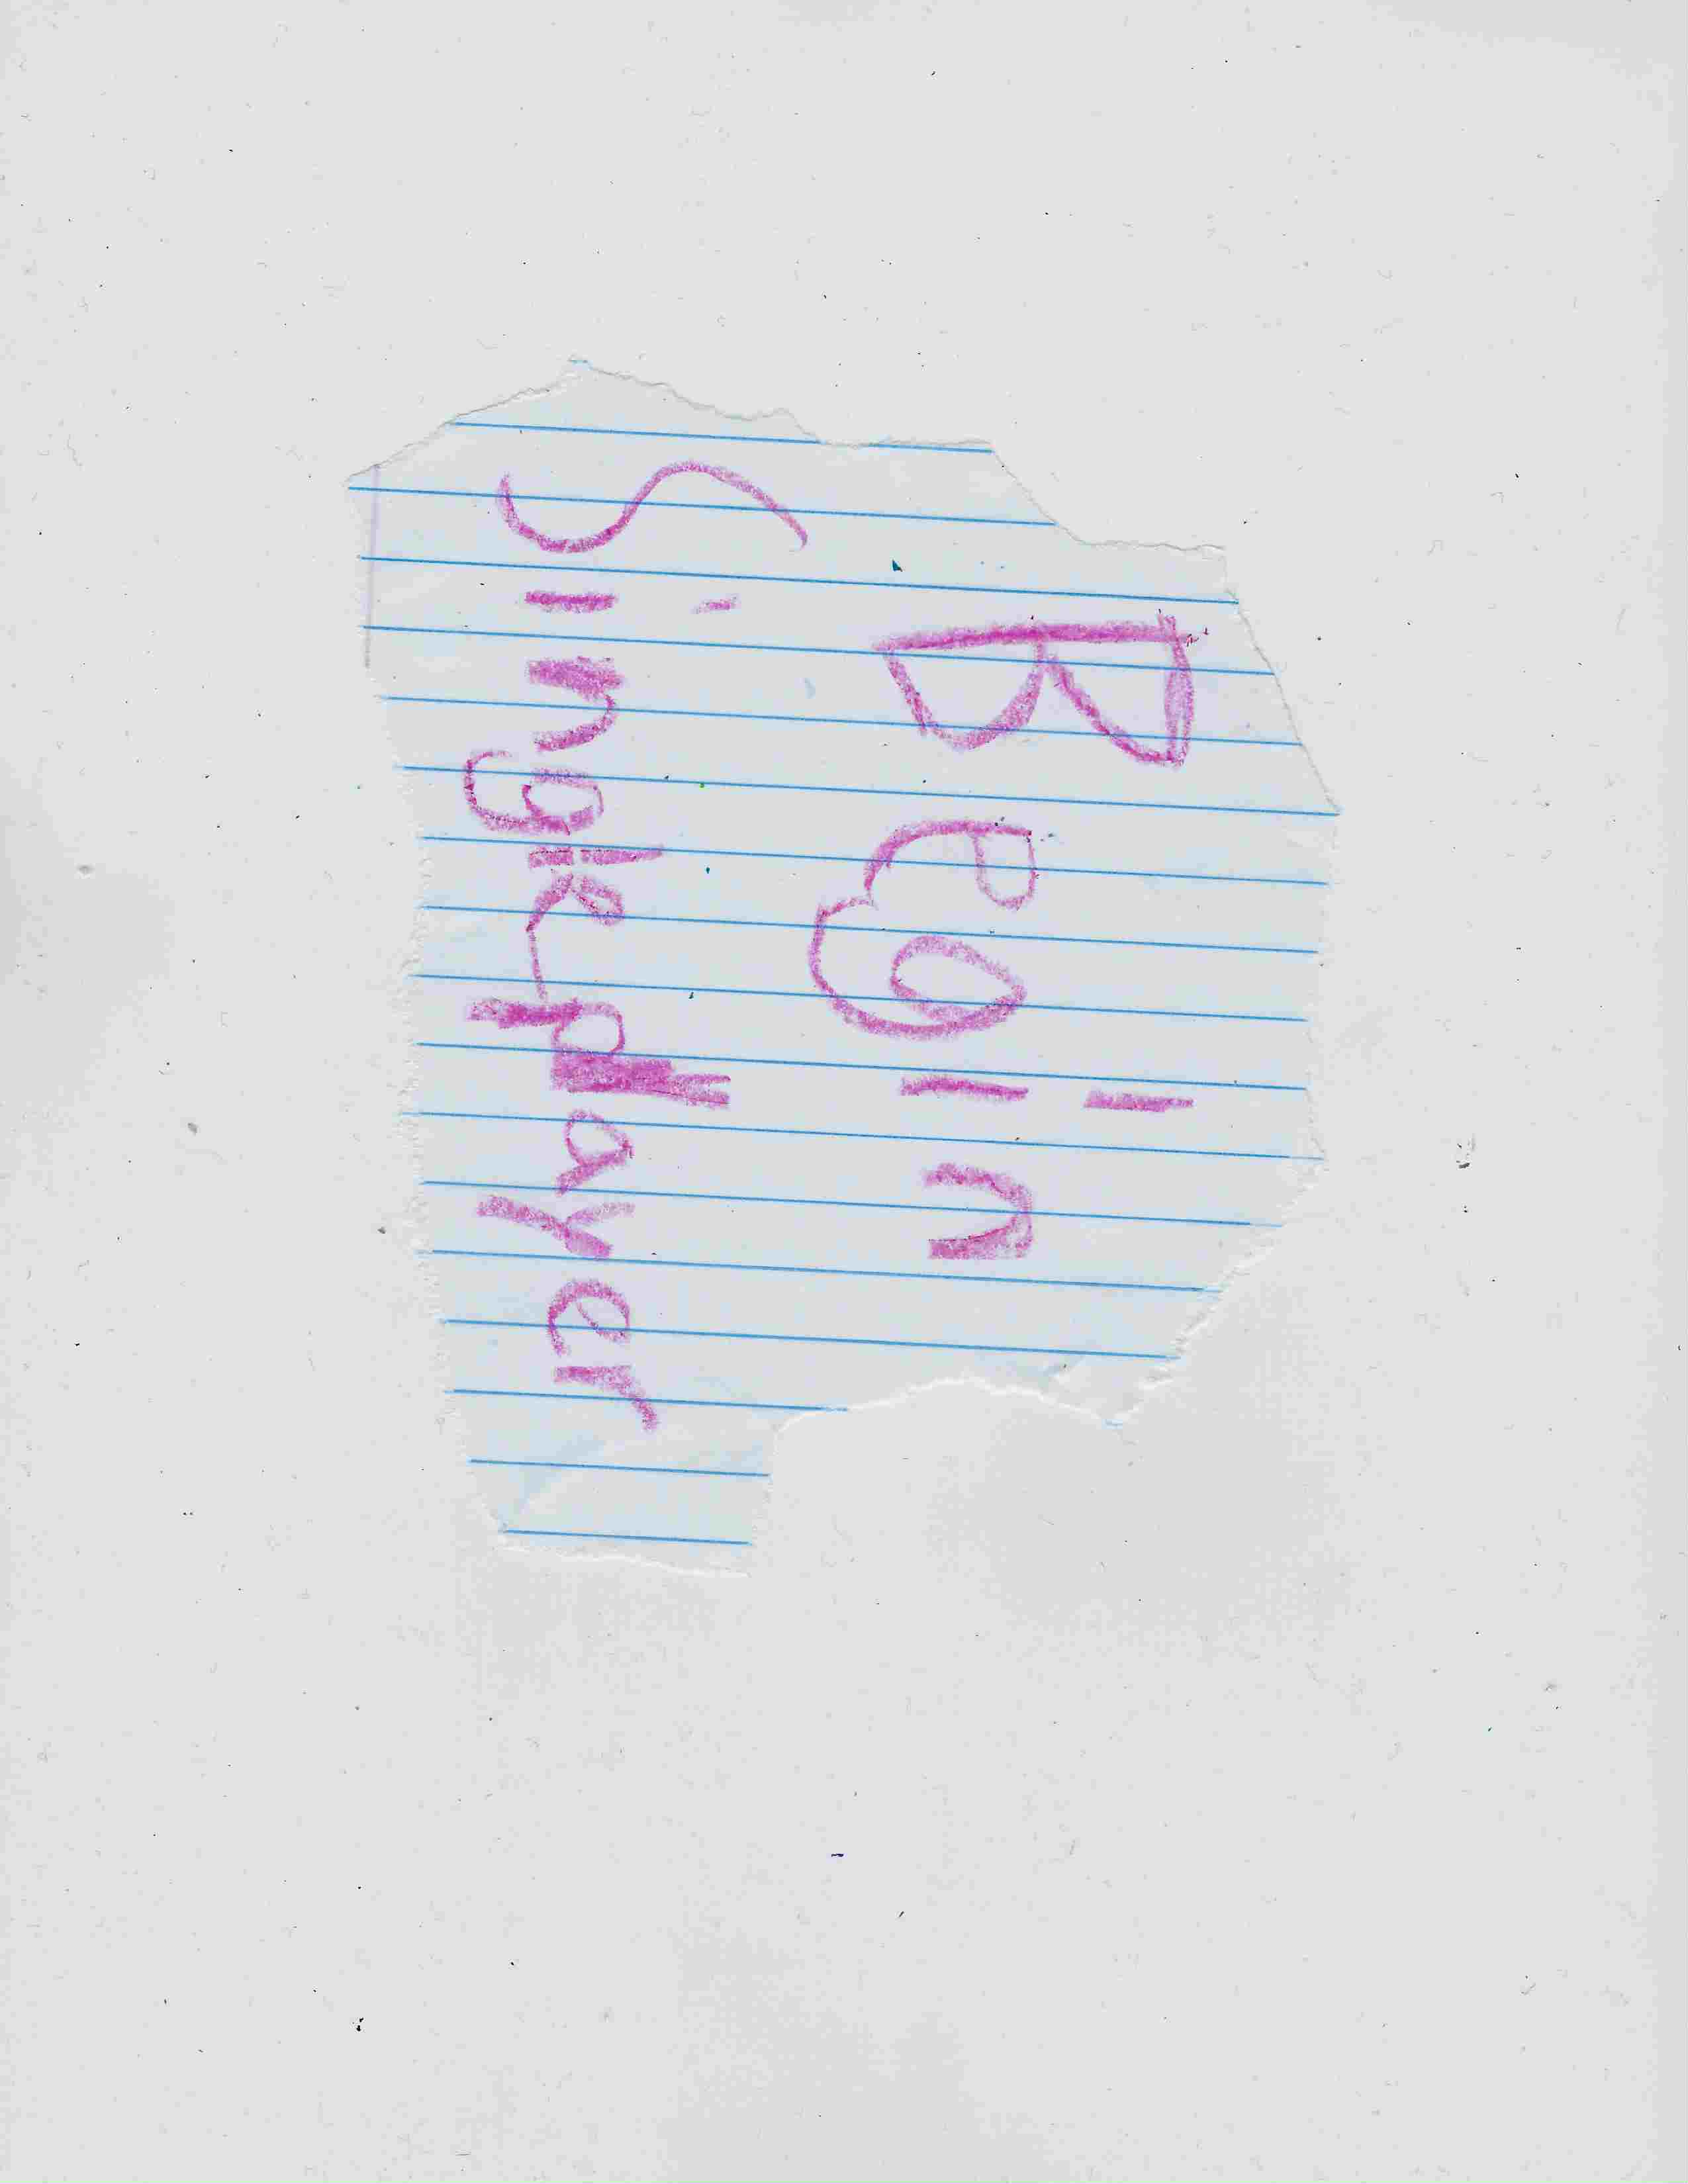 Begin
Singleplayer